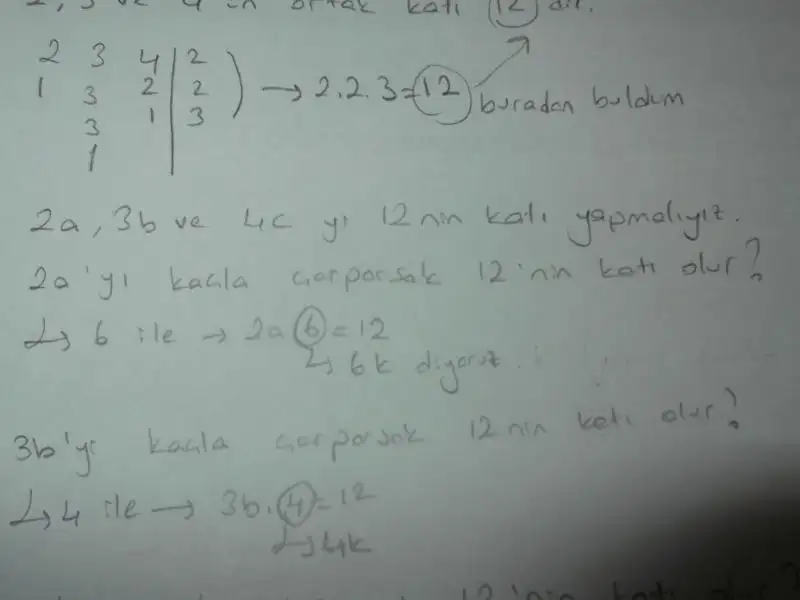 2, 3 ve 4'ün ortak katı 12 dir.
2 3 4 | 2
1 3 2 | 2 → 2.2.3=12 buradan buldum
3 1 | 3
1
2a, 3b ve 4c yi 12nin katı yapmalıyız.
2a'yı kaçla çarparsak 12'nin katı olur?
↳ 6 ile → 2a 6 = 12
↳ 6k diyoruz.
3b'yi kaçla çarparsak 12nin katı olur?
↳ 4 ile → 3b.4=12
↳ 4k
12'nin katı olur?